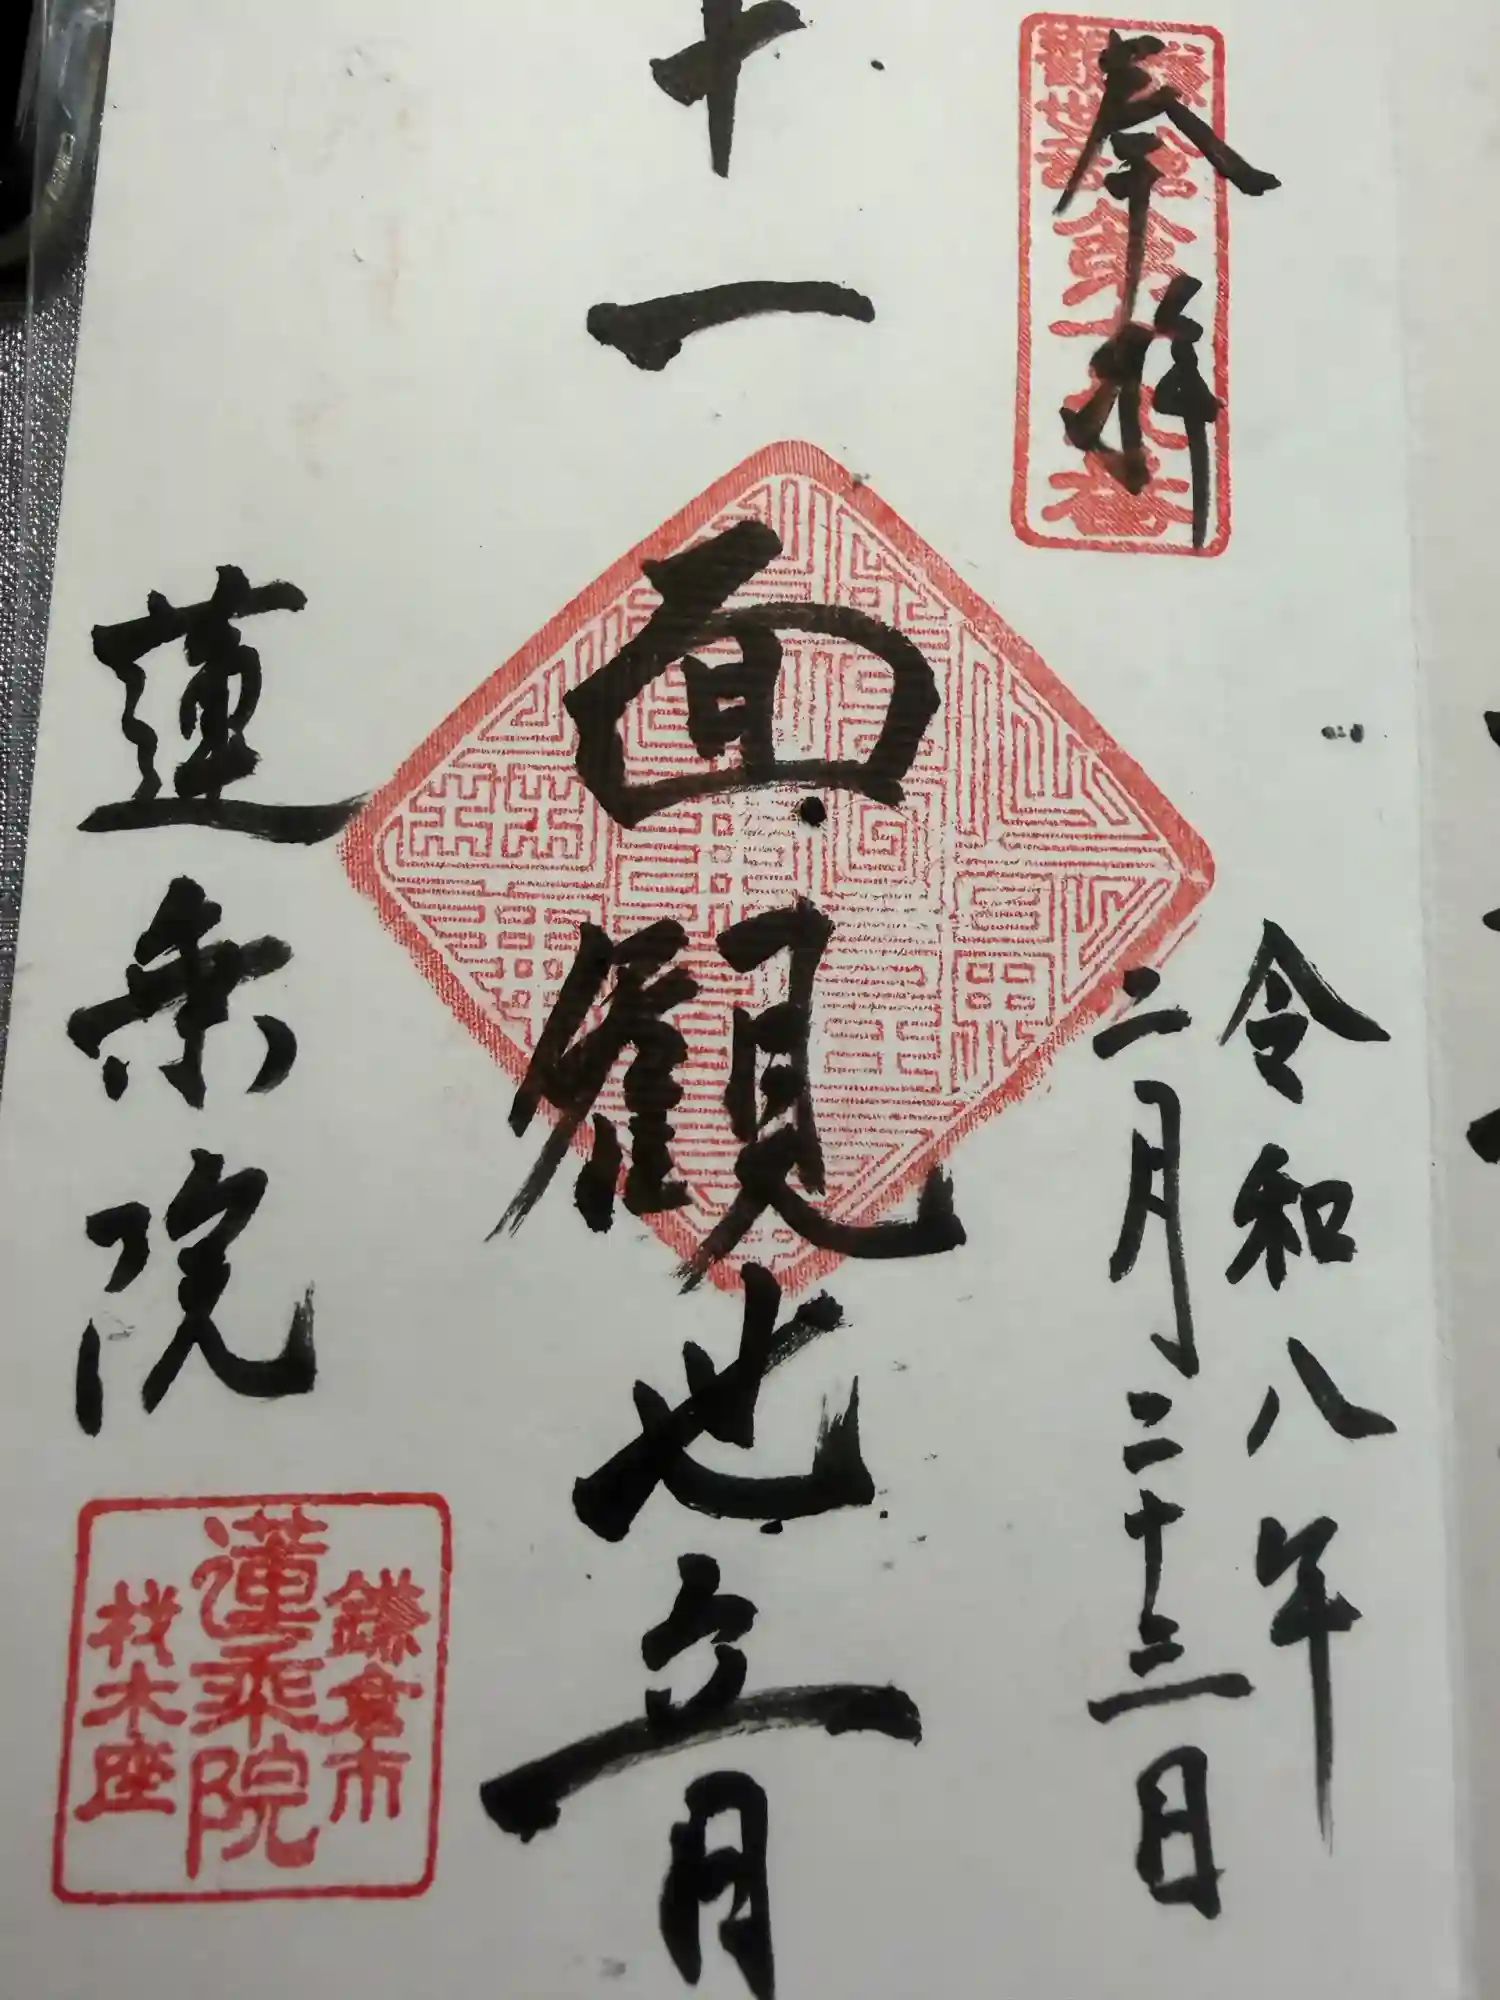 奉拝
鎌倉
観世音
第十九番
令和八年
二月二十三日
十一面観世音
蓮乗院
鎌倉市
蓮乗院
材木座